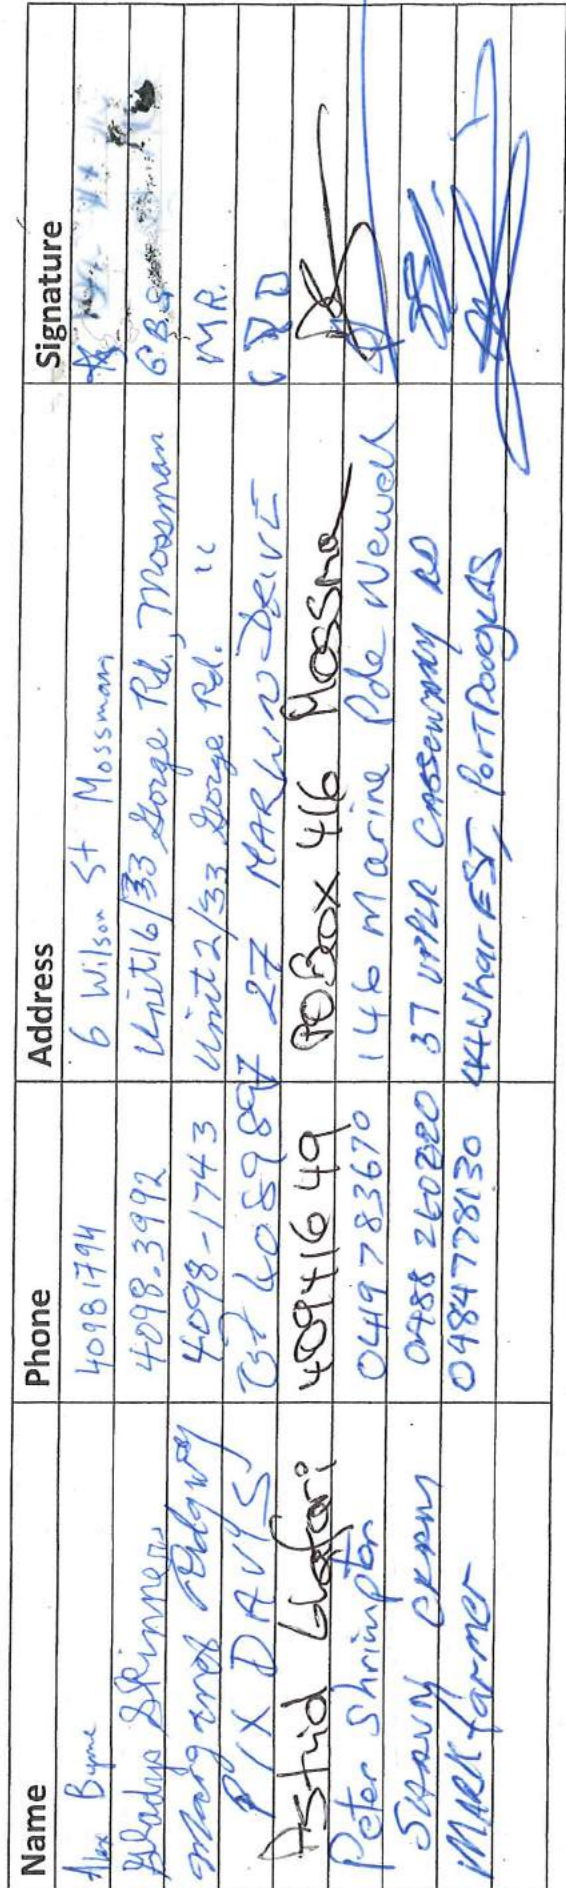 Name Phone Address Signature
Alex Byrne 40981794 6 Wilson St Mossman
Gladys Skinner 4098-3992 Unit 16/33 Gorge Rd, Mossman G.B.S
Margaret Ridgway 4098-1743 Unit 2/33 Gorge Rd. " M.R.
PIX DAVIS 27 MARLIN DRIVE
Astrid 40941649 PO Box 416 Mossma
Peter Shrimpton 0419783670 146 Marine Pde Newell
37 UPPER CASSOWARY RD
MARK farmer 0484778130 44 WharF ST, Port DougLAS